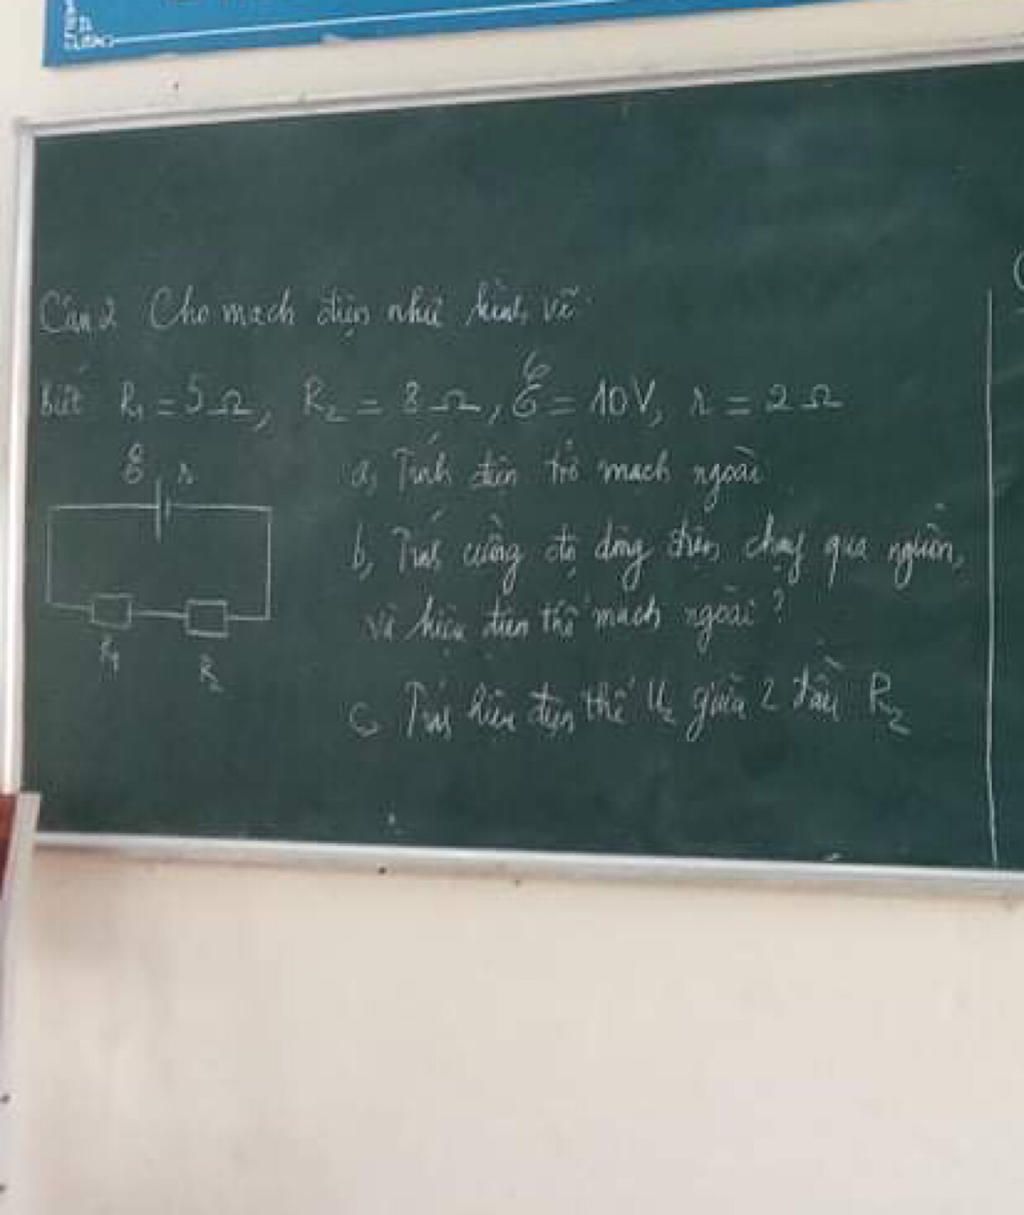 Câu 2 Cho mạch điện như hình vẽ
biết R₁ = 5Ω, R₂ = 8Ω, ℰ = 10V, r = 2Ω
ℰ r
a, Tính điện trở mạch ngoài
b, Tính cường độ dòng điện chạy qua nguồn,
và hiệu điện thế mạch ngoài?
R₁ R₂
c, Tính hiệu điện thế U₂ giữa 2 đầu R₂